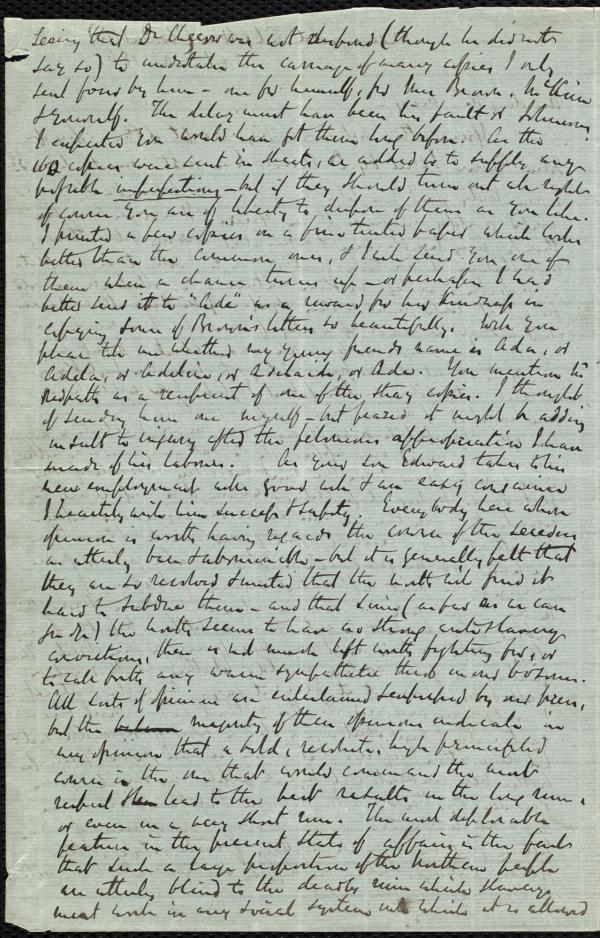 Seeing that Dr Cheever was not disposed (though he did not
say so) to undertake the carriage of many copies I only
sent four by him - one for himself, for Mrs Brown, McKim
& yourself. The delay must have been his fault or Johnson's.
I expected you would have got them long before. As the
100 copies were sent in sheets, we added to supply any
possible imperfections - but if they should turn out all right
of course you are at liberty to dispose of them as you like.
I printed a few copies on a fine tinted paper which looks
better than the common ones, & I will send you one of
them when a chance turns up - or perhaps I had
better send it to "Ada" as a reward for her kindness in
copying some of Brown's letters so beautifully. Will you
please tell me whether my young friend's name is Ada, or
Adela, or Adeline, or Adelaide, or Ada. You mention Mr
Redpath as a recipient of one of the stray copies. I thought
of sending him one myself - but feared it might be adding
insult to injury after the felonious appropriation I have
made of his labours. As your son Edward takes to his
new employment with good will & an easy conscience
I heartily wish him success & safety. Everybody here whose
opinion is worth having regards the course of the seceders
as utterly base & abominable - but it is generally felt that
they are so resolved & united that the north will find it
hard to subdue them - and that since (as far as we can
judge) the north seems to have no strong anti slavery
convictions, there is not much left worth fighting for, or
to call forth any warm sympathetic throb in our bosoms.
All sorts of opinion are entertained & expressed by our press,
but the majority of these opinions indicate in
my opinion that a bold, resolute, high principled
course is the one that would command the most
respect & lead to the best results in the long run,
or even in a very short run. The most deplorable
feature in the present state of affairs is the fact
that such a large proportion of the northern people
are utterly blind to the deadly ruin which slavery
must work in any social system in which it is allowed